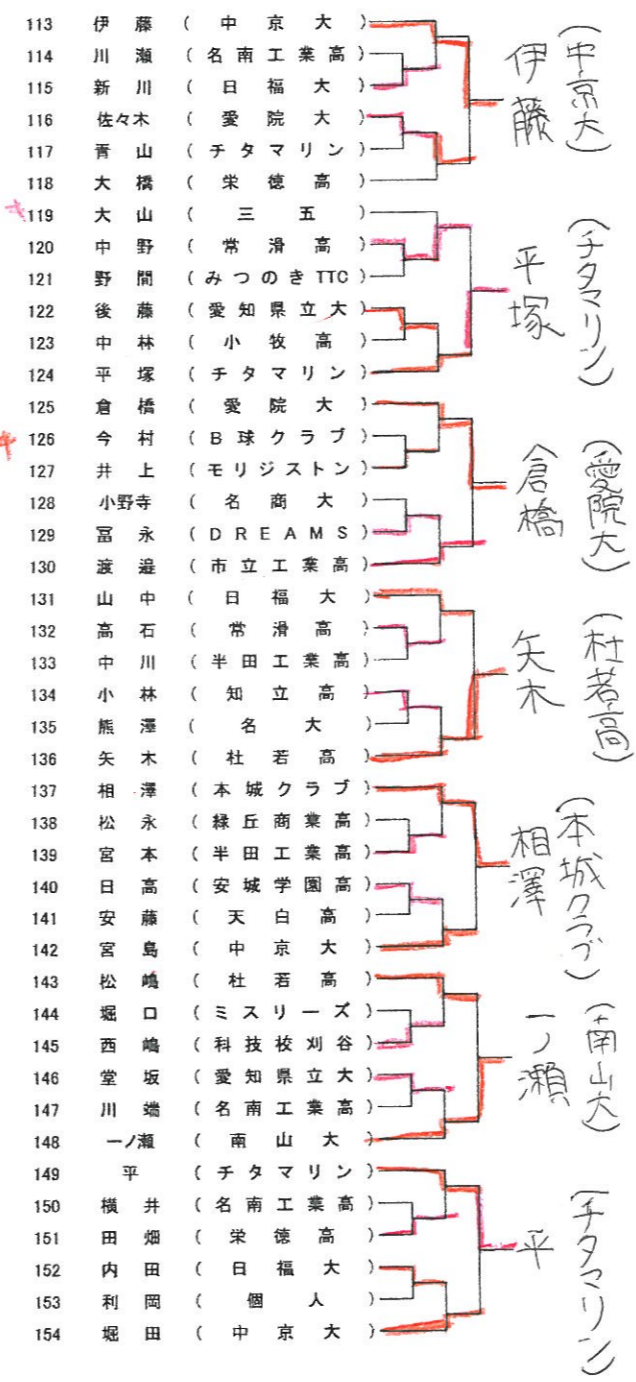 113 伊藤 (中京大)
114 川瀬 (名南工業高)
115 新川 (日福大)
116 佐々木 (愛院大)
117 青山 (チタマリン)
118 大橋 (栄徳高)
伊藤 (中京大)
119 大山 (三五)
120 中野 (常滑高)
121 野間 (みつのきTTC)
122 後藤 (愛知県立大)
123 中林 (小牧高)
124 平塚 (チタマリン)
平塚 (チタマリン)
125 倉橋 (愛院大)
126 今村 (B球クラブ)
127 井上 (モリジストン)
128 小野寺 (名商大)
129 冨永 (DREAMS)
130 渡邉 (市立工業高)
倉橋 (愛院大)
131 山中 (日福大)
132 高石 (常滑高)
133 中川 (半田工業高)
134 小林 (知立高)
135 熊澤 (名大)
136 矢木 (杜若高)
矢木 (杜若高)
137 相澤 (本城クラブ)
138 松永 (緑丘商業高)
139 宮本 (半田工業高)
140 日高 (安城学園高)
141 安藤 (天白高)
142 宮島 (中京大)
相澤 (本城クラブ)
143 松嶋 (杜若高)
144 堀口 (ミスリーズ)
145 西嶋 (科技校刈谷)
146 堂坂 (愛知県立大)
147 川端 (名南工業高)
148 一ノ瀬 (南山大)
一ノ瀬 (南山大)
149 平 (チタマリン)
150 横井 (名南工業高)
151 田畑 (栄徳高)
152 内田 (日福大)
153 利岡 (個人)
154 堀田 (中京大)
平 (チタマリン)